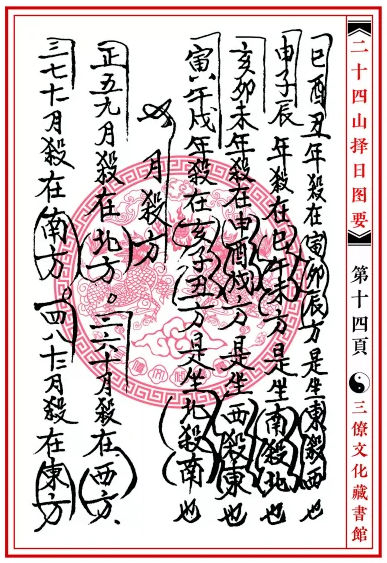 二十四山择日图要
第十四頁
三僚文化藏書館
巳酉丑年殺在寅卯辰方是坐東殺西也
申子辰年殺在巳午未方是坐南殺北也
亥卯未年殺在申酉戌方是坐西殺東也
寅午戌年殺在亥子丑方是坐北殺南也
月殺方
正五九月殺在北方。二六十月殺在西方、
三七十一月殺在南方。四八十二月殺在東方